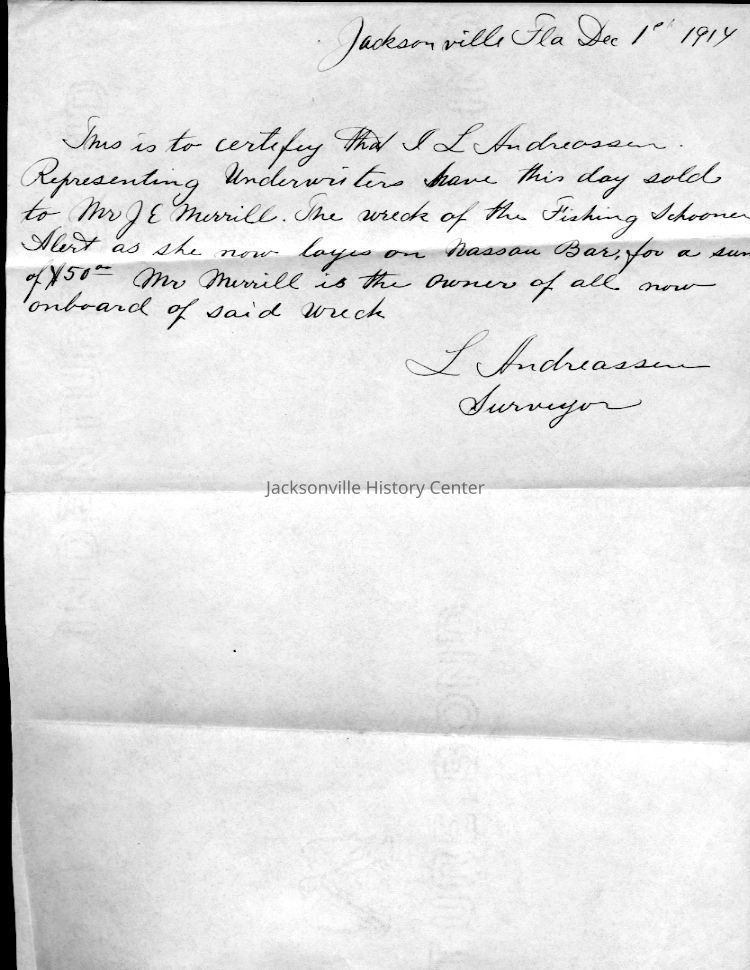 Jacksonville Fla Dec 1st 1914
This is to certefey that I L Andreassen.
Representing Underwriters have this day sold
to Mr J E Merrill. The wreck of the Fishing Schooner
Alert as she now layes on Nassau Bar, for a sum
of $50 00 Mr Merrill is the owner of all now
onboard of said wreck
L Andreassen
Surveyor
Jacksonville History Center